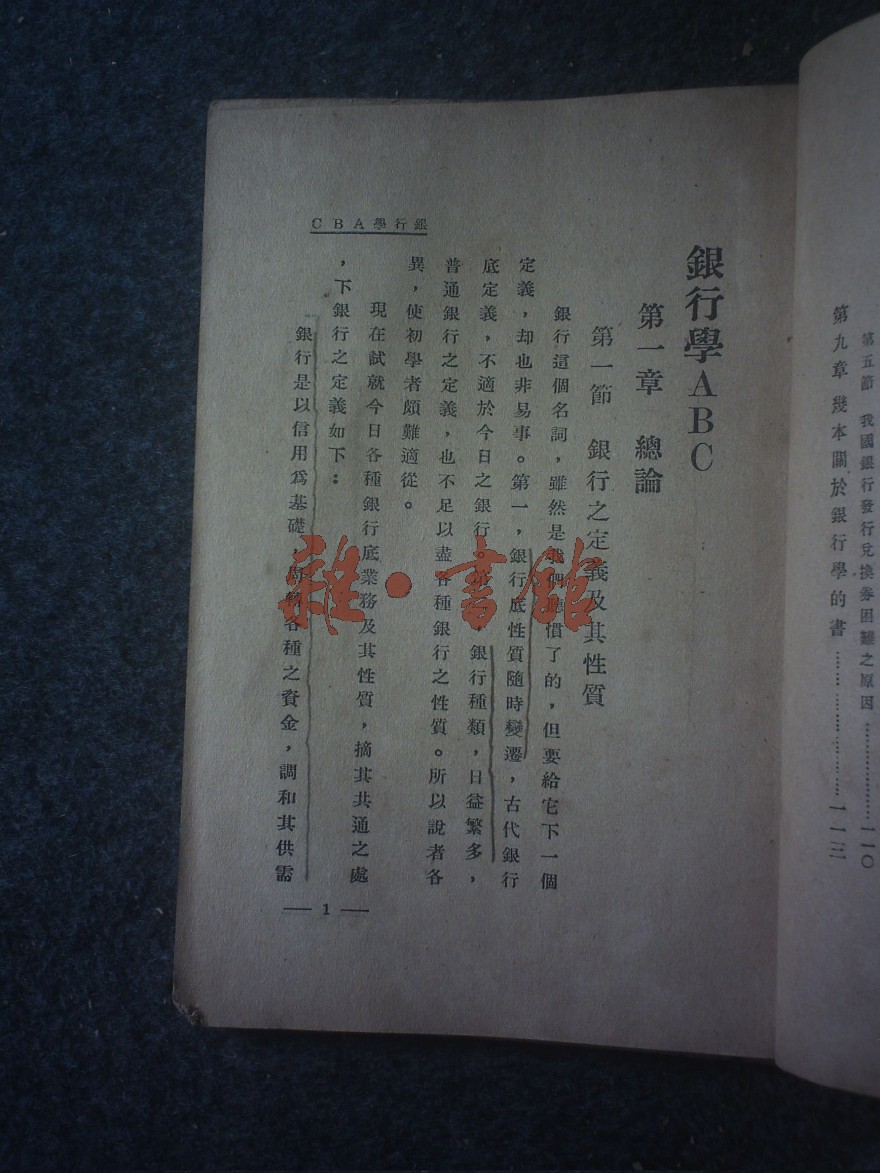 第五節 我國銀行發行兌換券困難之原因…………………一一〇
第九章 幾本關於銀行學的書…………………一一三
銀行學ABC
第一章 總論
第一節 銀行之定義及其性質
銀行這個名詞,雖然是我們聽慣了的,但要給它下一個
定義,却也非易事。第一,銀行底性質隨時變遷,古代銀行
底定義,不適於今日之銀行。第,銀行種類,日益繁多,
普通銀行之定義,也不足以盡各種銀行之性質。所以說者各
異,使初學者頗難適從。
現在試就今日各種銀行底業務及其性質,摘其共通之處
,下銀行之定義如下:
銀行是以信用為基礎,各種之資金,調和其供需
CBA學行銀
— 1 —
雜·書館